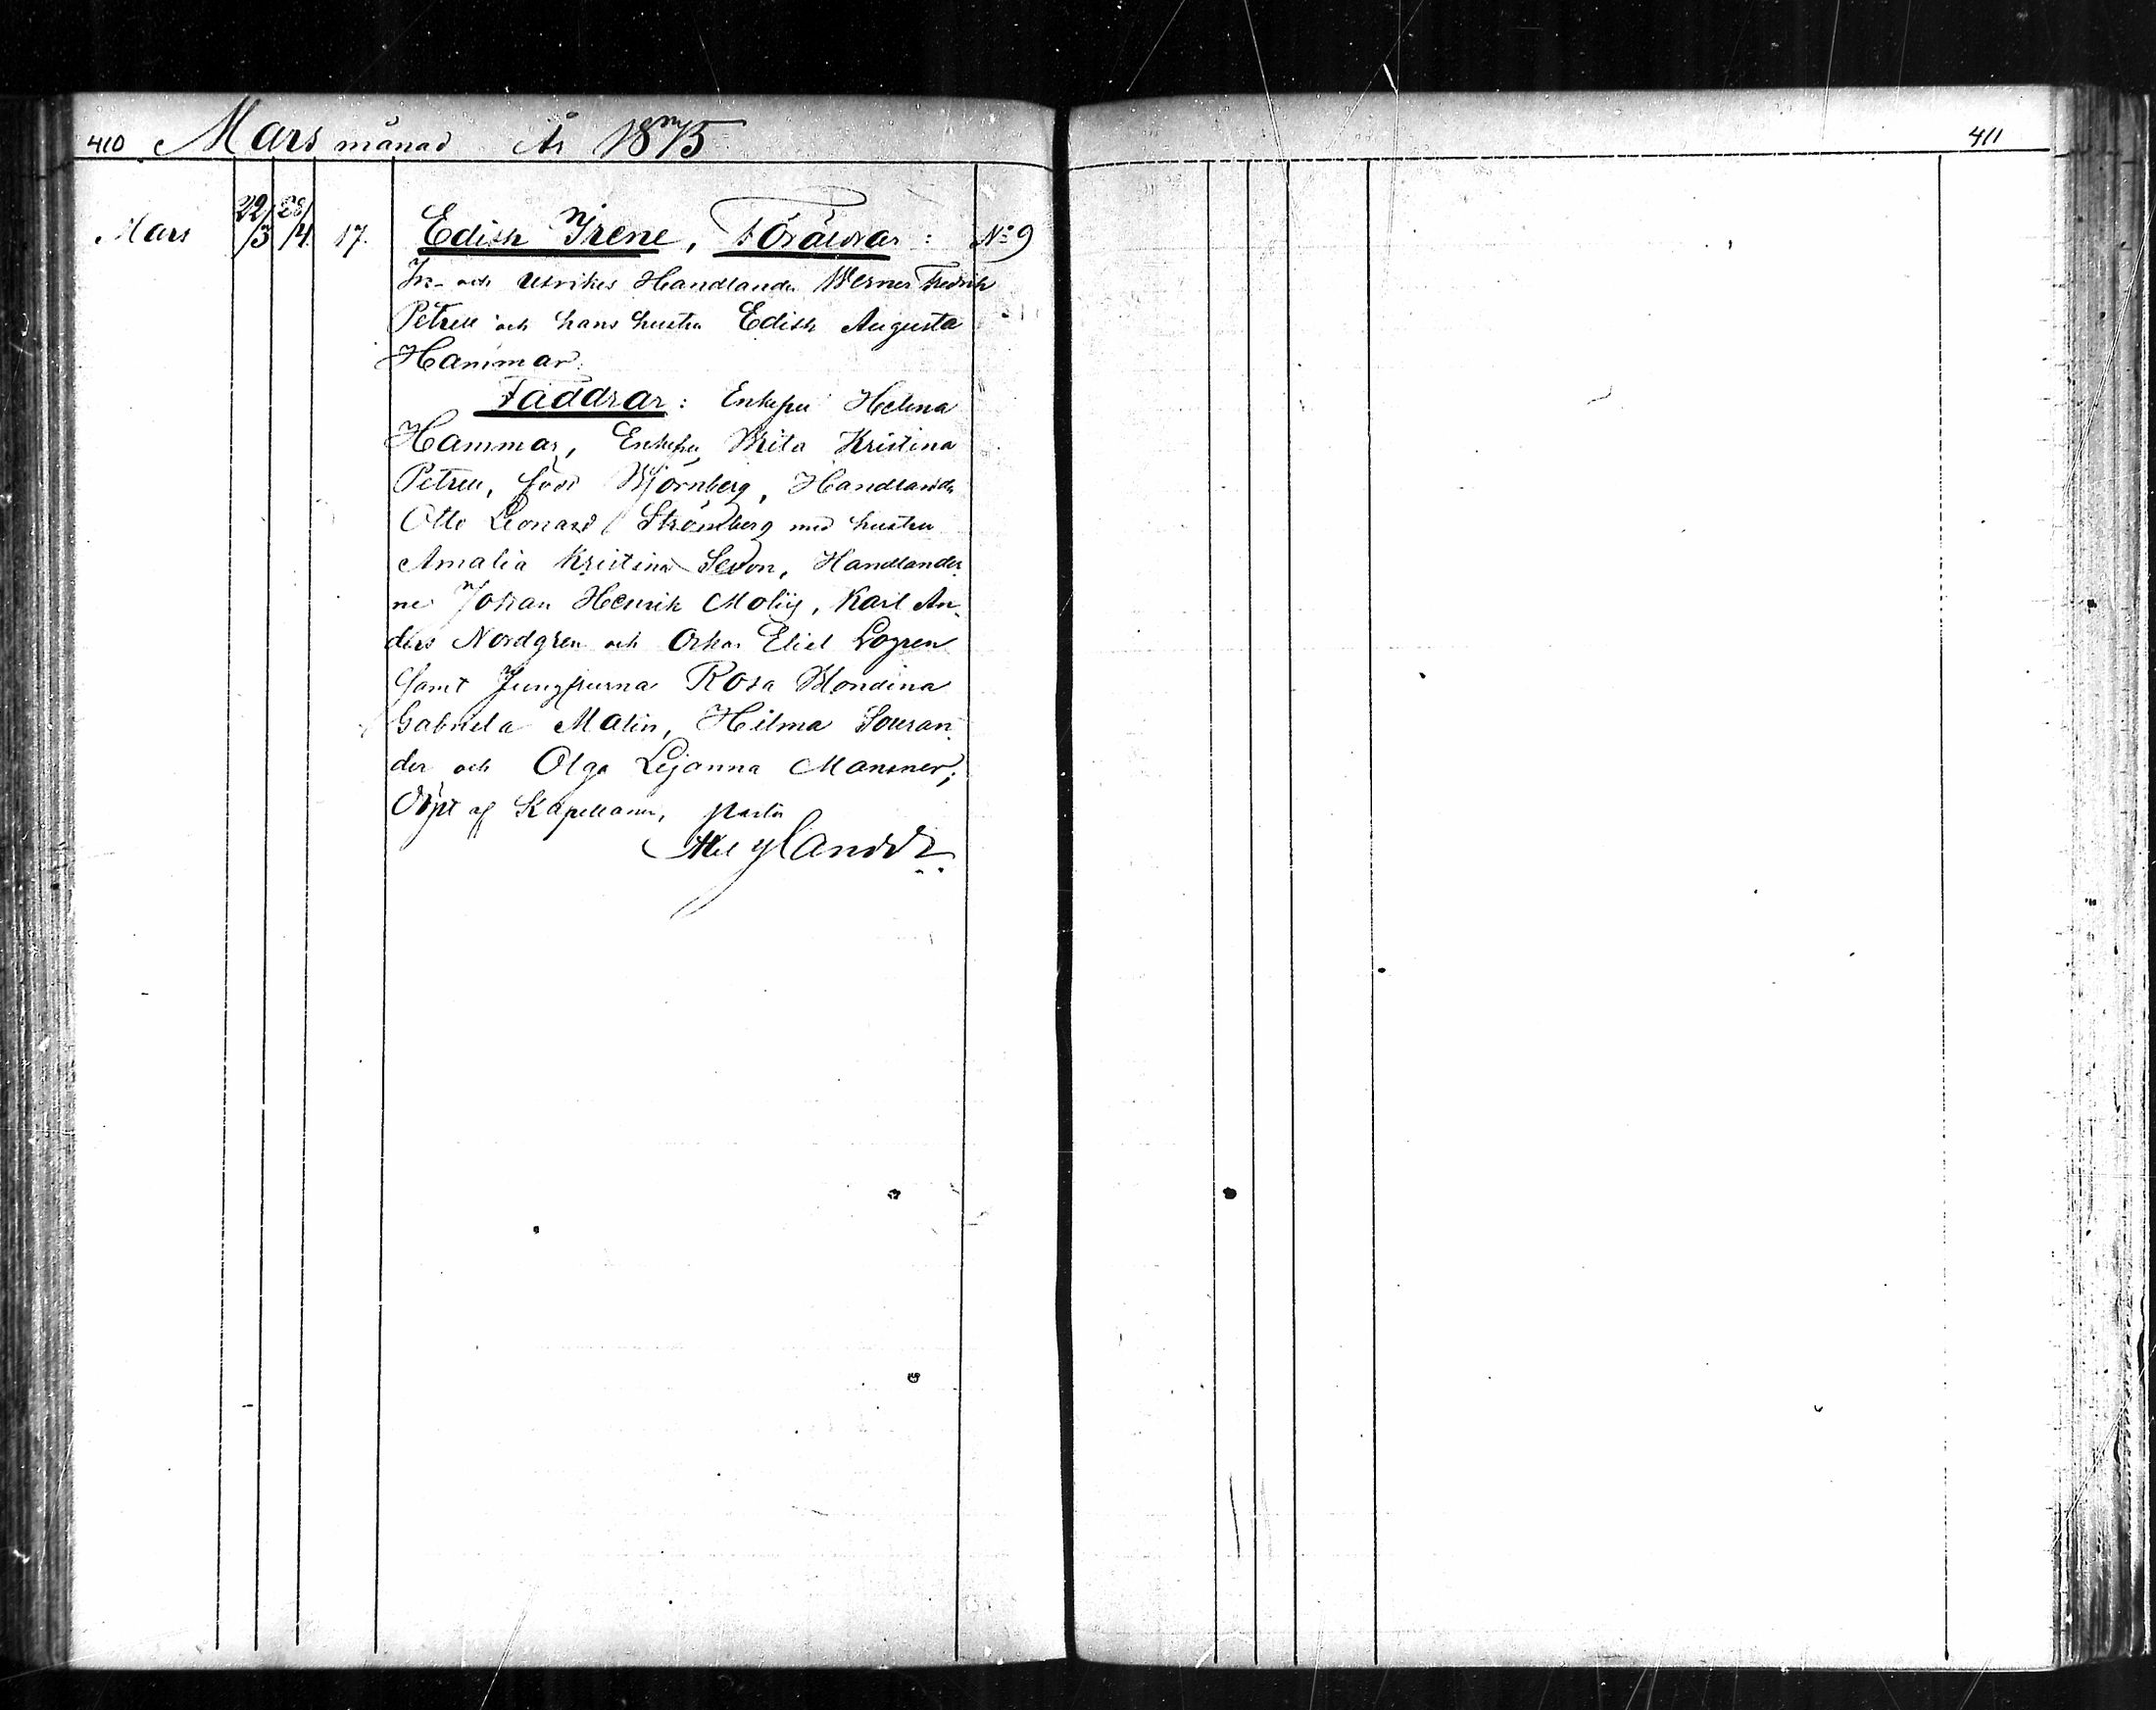 410 Mars månad År 1875
411
Mars 22/3 28/4 17. Edith Irene, Föräldrar: No 9
In- och Utrikes Handlanden Werner Fredrik
Petrell och hans hustru Edith Augusta
Hammar.
Faddrar: Enkefru Helena
Hammar, Enkefru Brita Kristina
Petrell, född Björnberg, Handlanden
Otto Leonard Strömberg med hustru
Amalia Kristina Sevon, Handlander-
ne Johan Henrik Moliis, Karl An-
ders Nordgren och Oskar Eliel Logren
samt Jungfrurna Rosa Blondina
Gabriela Malin, Hilma Souran-
der och Olga Lejanna Mansner;
Döpt af Kapellanen, Pastor